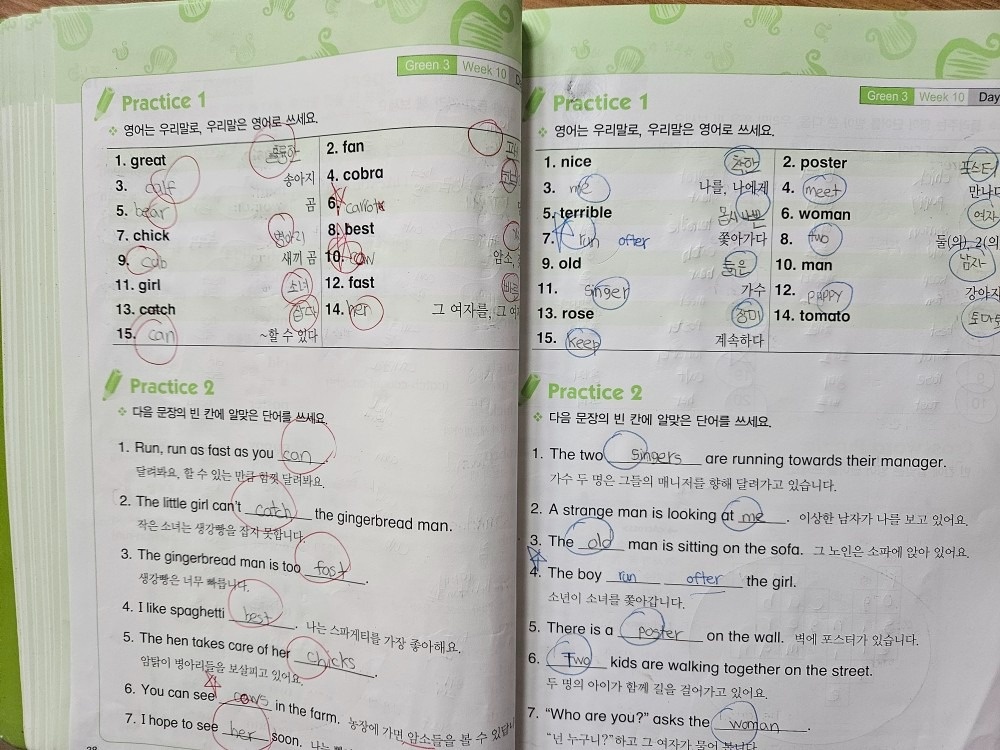 Green 3 Week 10
Practice 1
영어는 우리말로, 우리말은 영어로 쓰세요.
1. great 훌륭한
2. fan
3. calf 송아지
4. cobra
5. bear 곰
6. carrot
7. chick 병아리
8. best
9. cub 새끼 곰
10. cow 암소,
11. girl 소녀
12. fast
13. catch 잡다
14. her 그 여자를, 그
15. can ~할 수 있다
Practice 2
다음 문장의 빈 칸에 알맞은 단어를 쓰세요.
1. Run, run as fast as you can.
달려봐요, 할 수 있는 만큼 힘껏 달려봐요.
2. The little girl can't catch the gingerbread man.
작은 소녀는 생강빵을 잡지 못합니다.
3. The gingerbread man is too fast.
생강빵은 너무 빠릅니다.
4. I like spaghetti best. 나는 스파게티를 가장 좋아해요.
5. The hen takes care of her chicks.
암탉이 병아리들을 보살피고 있어요.
6. You can see cows in the farm. 농장에 가면 암소들을 볼 수 있답니
7. I hope to see her soon. 나는
Green 3 Week 10 Day
Practice 1
영어는 우리말로, 우리말은 영어로 쓰세요.
1. nice 착한
2. poster 포스터
3. me 나를, 나에게
4. meet 만나다
5. terrible 몹시 나쁜
6. woman 여자
7. run ofter 쫓아가다
8. two 둘(의), 2(의
9. old 늙은
10. man 남자
11. singer 가수
12. puppy 강아지
13. rose 장미
14. tomato 토마토
15. keep 계속하다
Practice 2
다음 문장의 빈 칸에 알맞은 단어를 쓰세요.
1. The two singers are running towards their manager.
가수 두 명은 그들의 매니저를 향해 달려가고 있습니다.
2. A strange man is looking at me. 이상한 남자가 나를 보고 있어요.
3. The old man is sitting on the sofa. 그 노인은 소파에 앉아 있어요.
4. The boy run ofter the girl.
소년이 소녀를 쫓아갑니다.
5. There is a poster on the wall. 벽에 포스터가 있습니다.
6. Two kids are walking together on the street.
두 명의 아이가 함께 길을 걸어가고 있어요.
7. "Who are you?" asks the woman.
"넌 누구니?"하고 그 여자가 물어 봅니다.